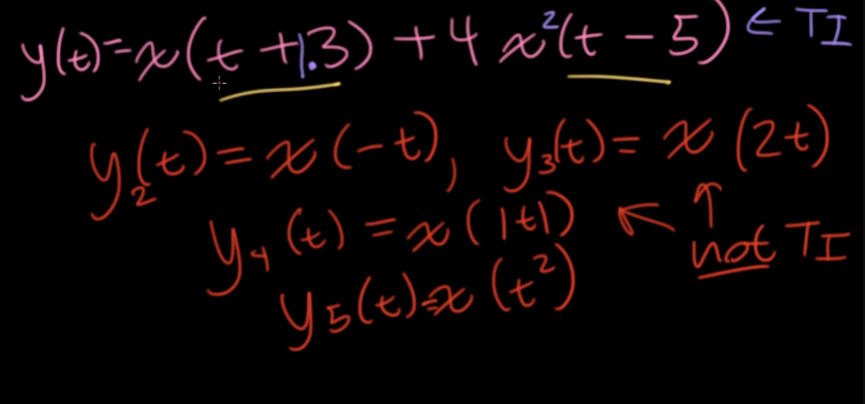 y(t)=x(t+1.3)+4x²(t-5) ← TI
y₂(t)=x(-t), y₃(t)=x(2t)
y₄(t)=x(|t|) ← ↑ not TI
y₅(t)=x(t²)